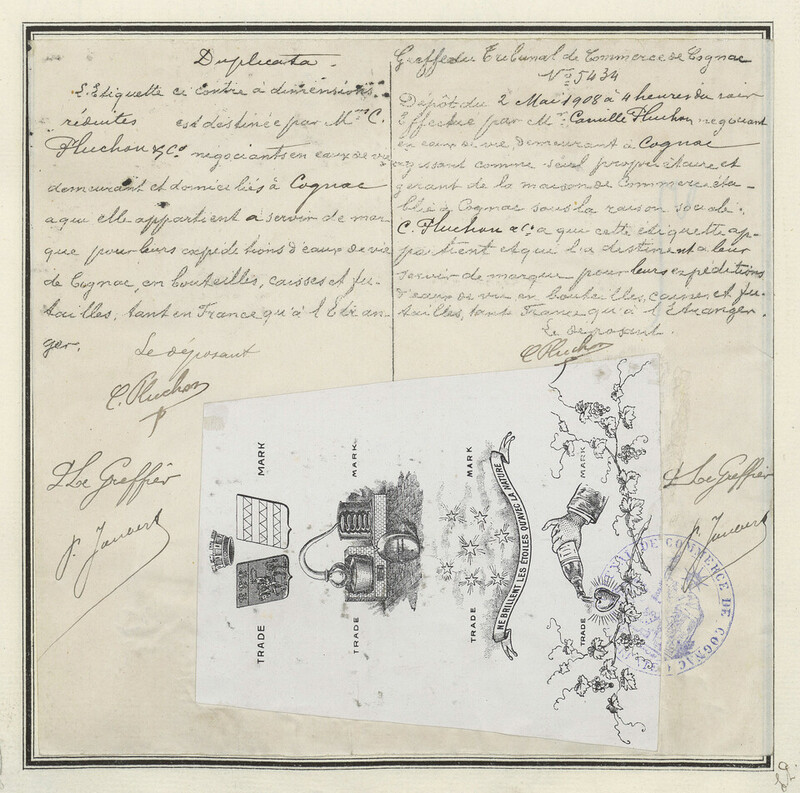 Duplicata.
L'Etiquette ci contre à dimensions
réduites est destinée par Mm. C.
Pluchon & Co négociants en eaux de vie
demeurant et domiciliés à Cognac
a qui elle appartient a servir de mar-
que pour leurs expéditions d'eaux de vie
de Cognac, en bouteilles, caisses et fu-
tailles, tant en France qu'à l'Etran-
ger.
Le déposant
C. Pluchon
P. Le Greffier
Greffe du Tribunal de Commerce de Cognac
No 5434
Dépôt du 2 Mai 1908 à 4 heures du soir
Effectué par Mr. Camille Pluchon négociant
en eaux de vie, demeurant à Cognac
agissant comme seul propriétaire et
gérant de la maison de Commerce éta-
blie à Cognac sous la raison sociale.
C. Pluchon & Co a qui cette étiquette ap-
partient et qui l'a destinent a leur
servir de marque pour leurs expéditions
d'eaux de vie en bouteilles, caisses, et fu-
tailles, tant France qu'à l'Etranger.
Le déposant.
C. Pluchon
P. Le Greffier
TRADE MARK
TRADE MARK
TRADE MARK
NE BRILLENT LES ÉTOILES QU'AVEC LA NATURE
TRADE MARK
TRIBUNAL DE COMMERCE DE COGNAC